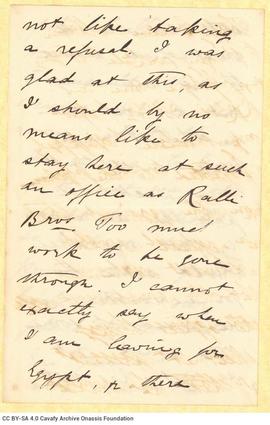 not like taking
a refusal. I was
glad at this, as
I should by no
means like to
stay here at such
an office as Ralli
Bros. Too much
work to be gone
through. I cannot
exactly say when
I am leaving for
Egypt, there
CC BY-SA 4.0 Cavafy Archive Onassis Foundation